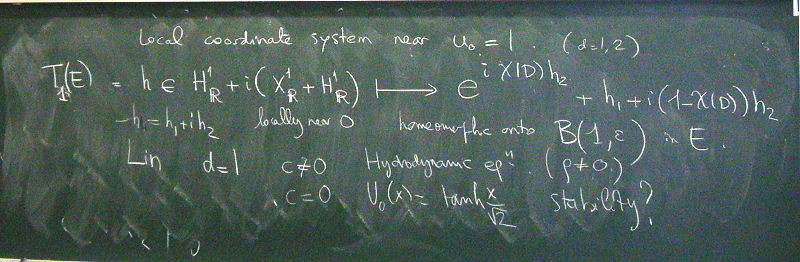 Local coordinate system near u₀ = 1. (d=1,2)
T₁(E) = h ∈ H¹_ℝ + i(X¹_ℝ + H¹_ℝ) ⟼ e^{iχ(D)h₂} + h₁ + i(1-χ(D))h₂
h = h₁ + ih₂ locally near 0 homeomorphic onto B(1,ε) in E.
Lin d=1 c≠0 Hydrodynamic eqⁿ. (ρ≠0.)
c=0 U₀(x) = tanh x/√2 stability?